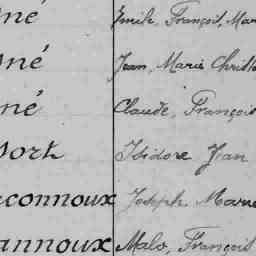 né Emile, François, Mar
né Jean, Marie Christ
né Claude, François
sort Isidore Jean
connoux Joseph Marie
annoux Malo, François